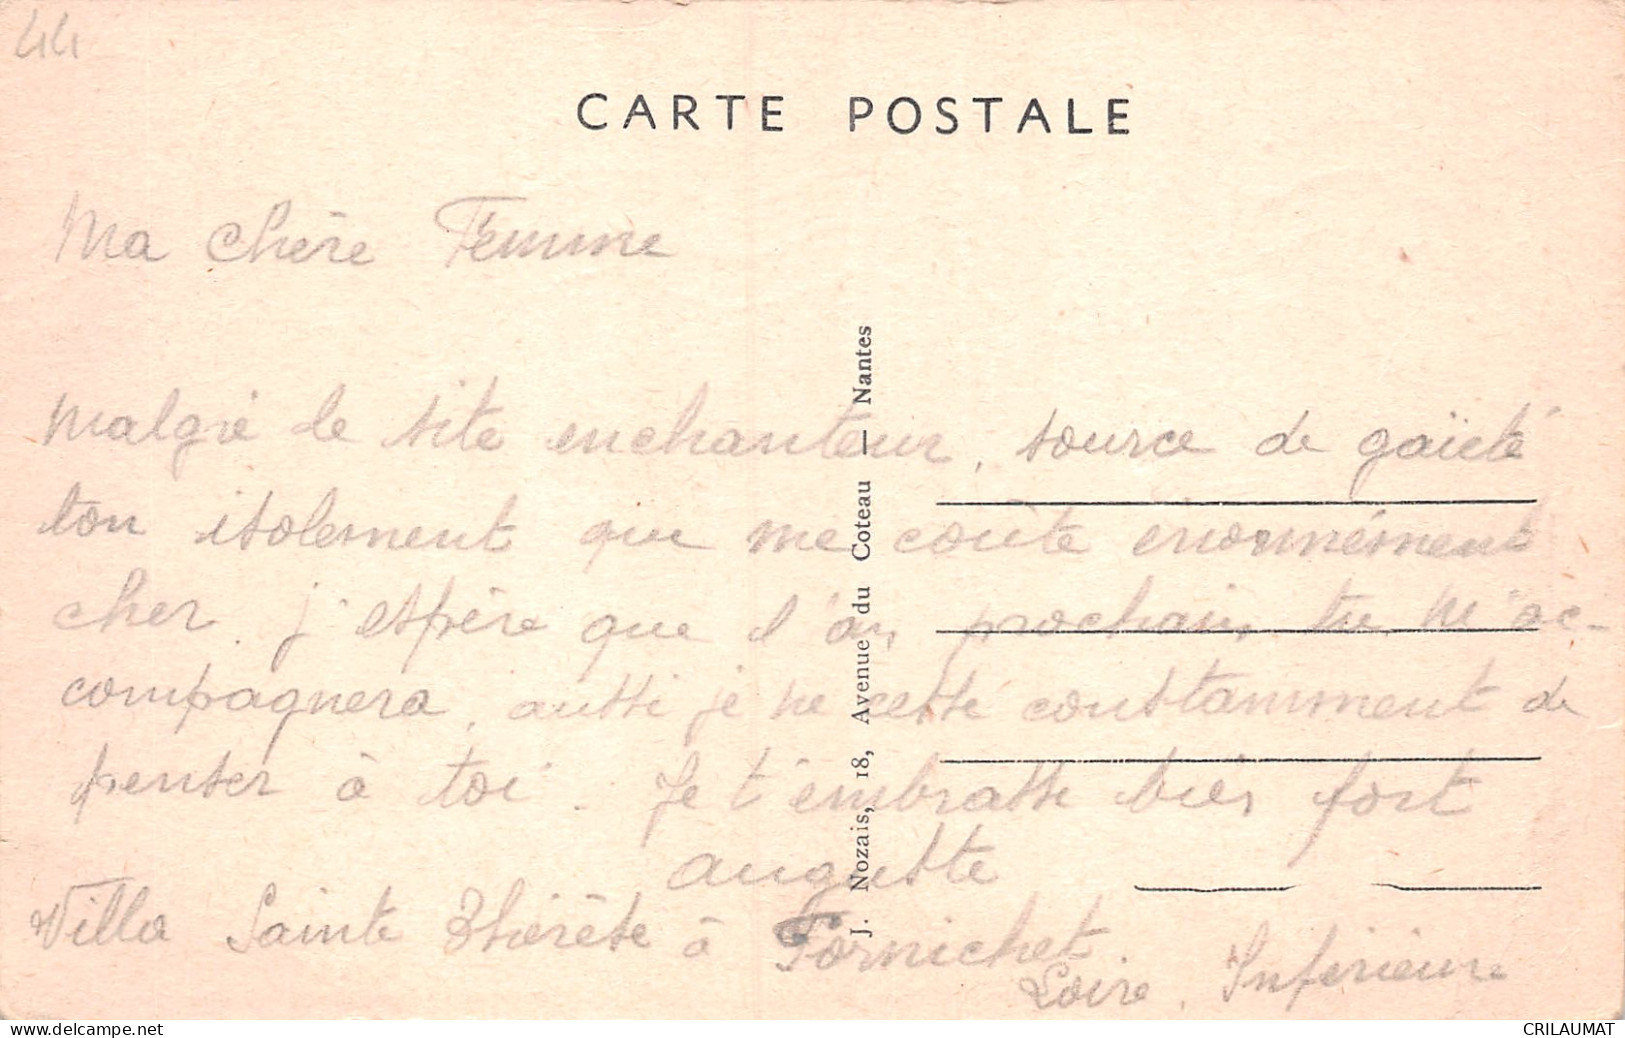 44
CARTE POSTALE
Ma chère Femme
Malgré le site enchanteur, source de gaieté
ton isolement que me coûte énormément
cher. j'espère que l'an prochain, tu m'ac-
compagnera, aussi je ne cesse constamment de
penser à toi. Je t'embrasse bien fort
auguste
Villa Sainte Thérèse à Pornichet
Loire, Inférieure
J. Nozais, 18, Avenue du Coteau — Nantes
CRILAUMAT